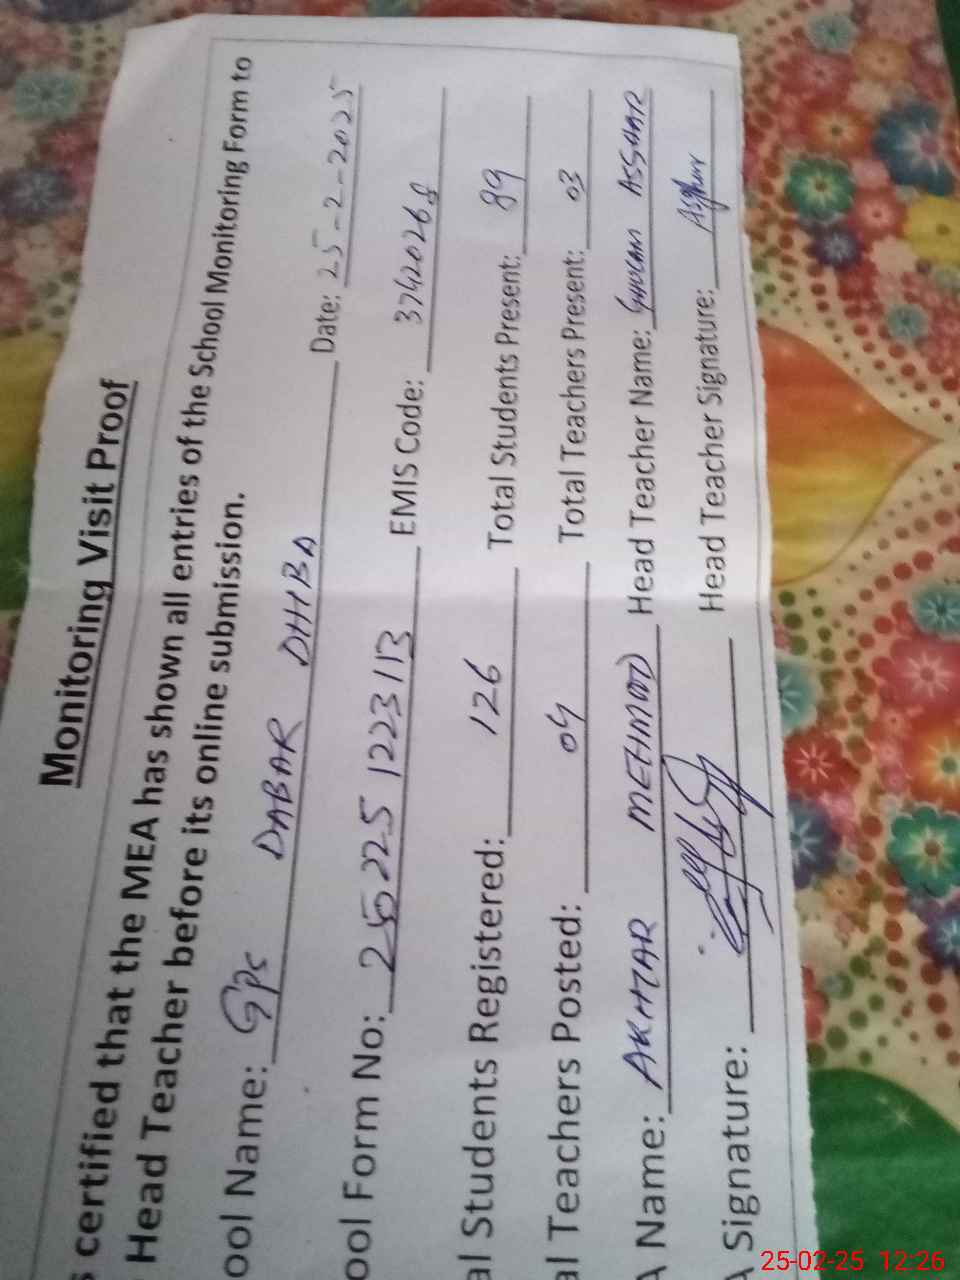 Monitoring Visit Proof
certified that the MEA has shown all entries of the School Monitoring Form to
Head Teacher before its online submission.
ool Name: GPS DABAR DHHBA Date: 25-2-2025
ool Form No: 255225 1223113 EMIS Code: 37420268
al Students Registered: 126 Total Students Present: 89
al Teachers Posted: 04 Total Teachers Present: 03
A Name: AKHTAR MEHMOOD Head Teacher Name: GHULAM ASGHAR
A Signature: Head Teacher Signature: Asghar
25-02-25 12:26